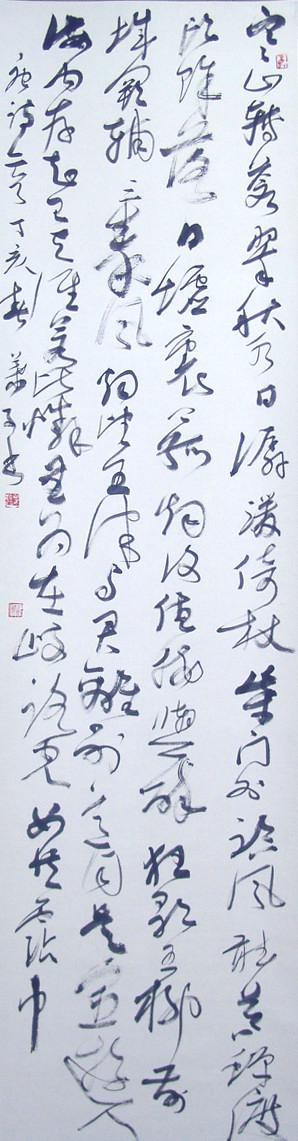 寒山轉蒼翠秋水日潺湲倚杖柴門外臨風聽暮蟬渡
頭餘落日墟裏上孤烟復值接輿醉狂歌五柳前
城闕輔三秦風烟望五津與君離別意同是宦遊人
海内存知己天涯若比鄰無为在歧路兒女共霑巾
唐詩二首丁亥春